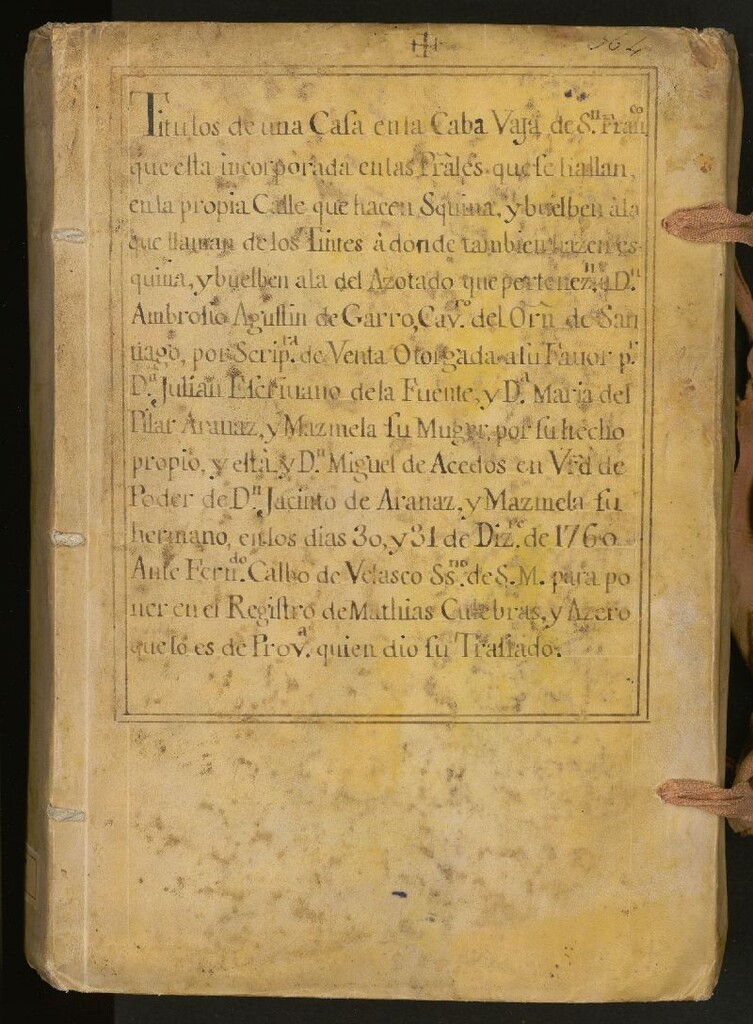 564
Titulos de una Casa en la Caba Vaja de S.ⁿ Fran.ᶜᵒ
que esta incorporada en las Prâles que se hallan,
en la propia Calle que hacen Squina, y buelben à la
que llaman de los Tintes â donde tambien hazen es-
quina, y buelben a la del Azotado que pertenez.ⁿ à D.ⁿ
Ambrosio Agustin de Garro, Cav.ʳᵒ del Orñ de San
tiago, por Scrip.ʳᵃ de Venta Otorgada a su Favor p.ʳ
D.ⁿ Julian Escriuano de la Fuente, y D.ᵃ Maria del
Pilar Aranaz, y Mazmela su Muger, por su hecho
propio, y està, y D.ⁿ Miguel de Acedos en Vrd de
Poder de D.ⁿ Jacinto de Aranaz, y Mazmela su
hermano, en los dias 30, y 31 de Diz.ʳᵉ de 1760
Ante Fern.ᵈᵒ Calbo de Velasco Ss.ⁿᵒ de S. M. para po
ner en el Registro de Mathias Culebras, y Azero
que lo es de Prov.ᵃ quien dio su Traslado.